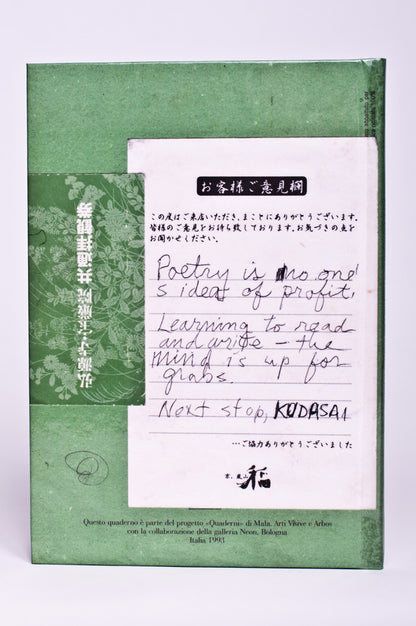 お客様ご意見欄
この度はご来店いただき、まことにありがとうございます。
皆様のご意見をお待ち致しております。お気づきの点を
お聞かせください。
Poetry is no one'
s idea of profit.
Learning to read
and write – the
mind is up for
grabs.
Next stop, KUDASAI
…ご協力ありがとうございました
京、東山 稲
弘源寺 宝厳院 共通拝観券
Questo quaderno è parte del progetto «Quaderni» di Mafa, Arti Visive e Arbos
con la collaborazione della galleria Neon, Bologna
Italia 1993